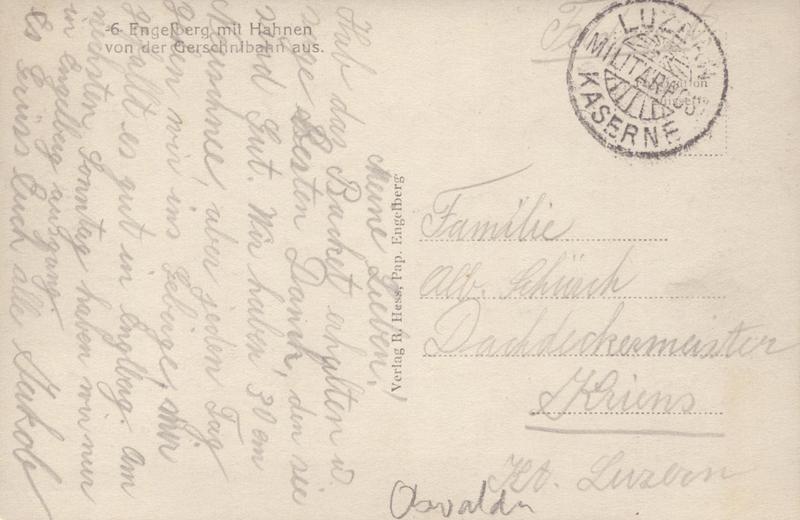 -6- Engelberg mit Hahnen
von der Gerschnibahn aus.
Meine Lieben!
Hab das Packet erhalten u.
sage Besten Dank, den sie
sind Gut. Wir haben 30 cm
Neuschnee, aber jeden Tag
gehen wir ins Gebirge, mir
gefällt es gut in Englberg. Am
nächsten Sonntag haben wir nur
in Engelberg ausgang.
Es Grüss Euch alle Jakob
Verlag R. Hess, Pap. Engelberg
LUZERN
MILITÄRPOST
KASERNE
Familie
Alb. Schürch
Dachdeckermeister
Kriens
Kt. Luzern